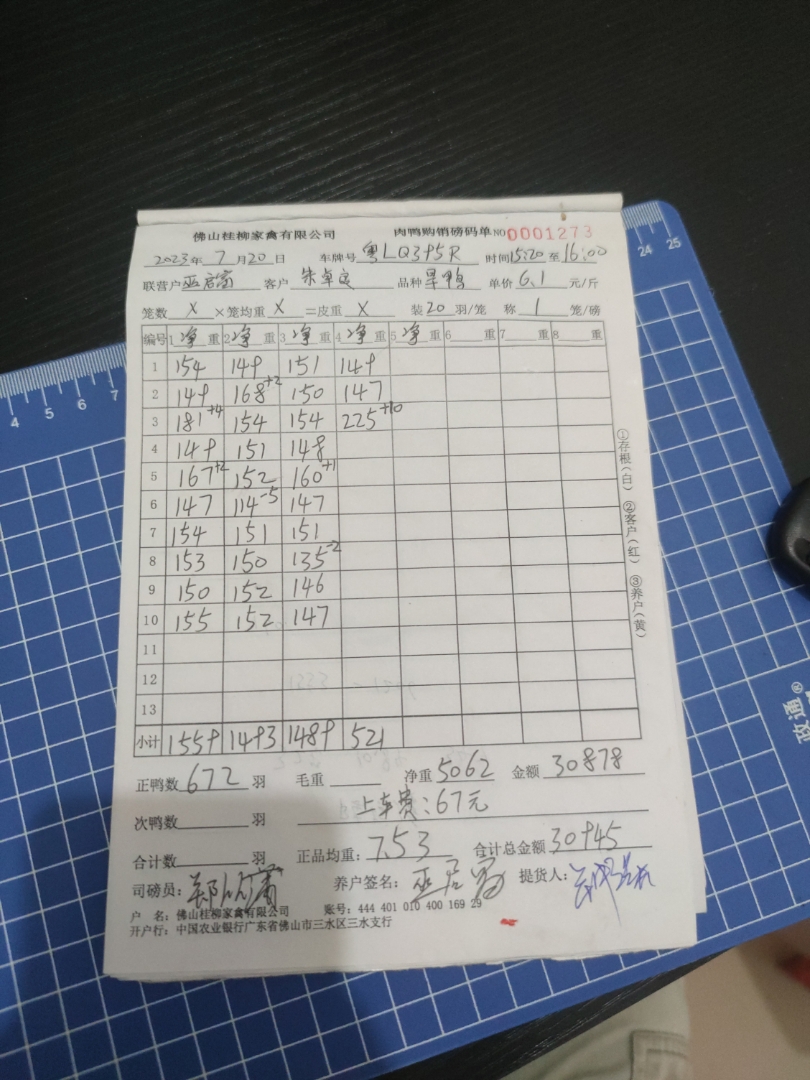 佛山桂柳家禽有限公司 肉鸭购销磅码单 NO 0001273
2023年 7月20日 车牌号 粤LQ395R 时间15:20至16:00
联营户 巫启富 客户 朱卓良 品种 旱鸭 单价 6.1 元/斤
笼数 X ×笼均重 X =皮重 X 装20羽/笼 称 1 笼/磅
编号 1净重 2净重 3净重 4净重 5净重 6 重 7 重 8 重
1 154 149 151 149
2 149 168+2 150 147
3 181+4 154 154 225+10
4 149 151 148
5 167+2 152 160+1
6 147 114-5 147
7 154 151 151
8 153 150 135-2
9 150 152 146
10 155 152 147
11
12
13
小计 1559 1493 1489 521
正鸭数 672 羽 毛重 净重 5062 金额 30878
次鸭数 羽 上车费:67元
合计数 羽 正品均重: 7.53 合计总金额 30945
司磅员: 养户签名: 巫启富 提货人:
户 名: 佛山桂柳家禽有限公司 账号: 444 401 010 400 169 29
开户行: 中国农业银行广东省佛山市三水区三水支行
①存根(白) ②客户(红) ③养户(黄)
4 5 6 7
24 25
政通®